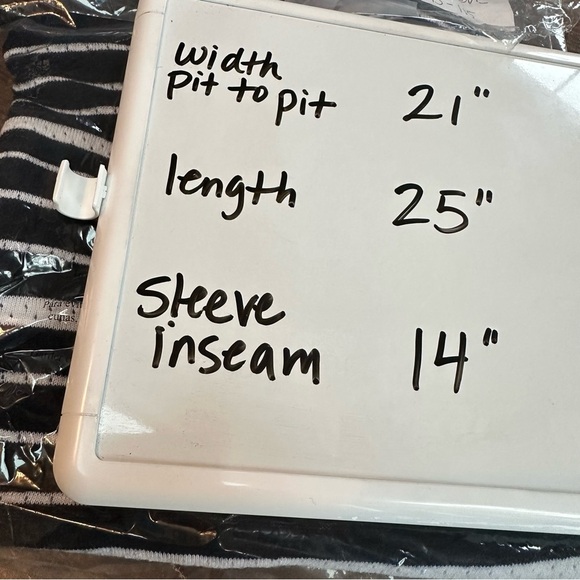 width
pit to pit 21"
length 25"
Sleeve
inseam 14"
cunas.